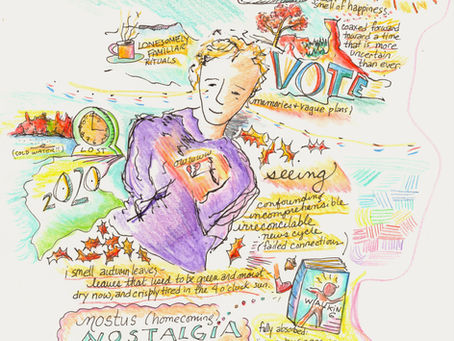 smell of happiness.
coaxed forward
toward a time
that is more
uncertain
than ever.
LONESOMELY
FAMILIAR
RITUALS
VOTE
memories + vague plans)
(COLD WATER)
LOST
2020
seeing
confounding
incomprehensible
irreconcilable
news cycle
(failed connections)
i smell autumn leaves
leaves that used to be green and moist
dry now, and crisply tired in the 4 o'clock sun.
WALKING
nostus (homecoming)
NOSTALGIA
fully absorbed